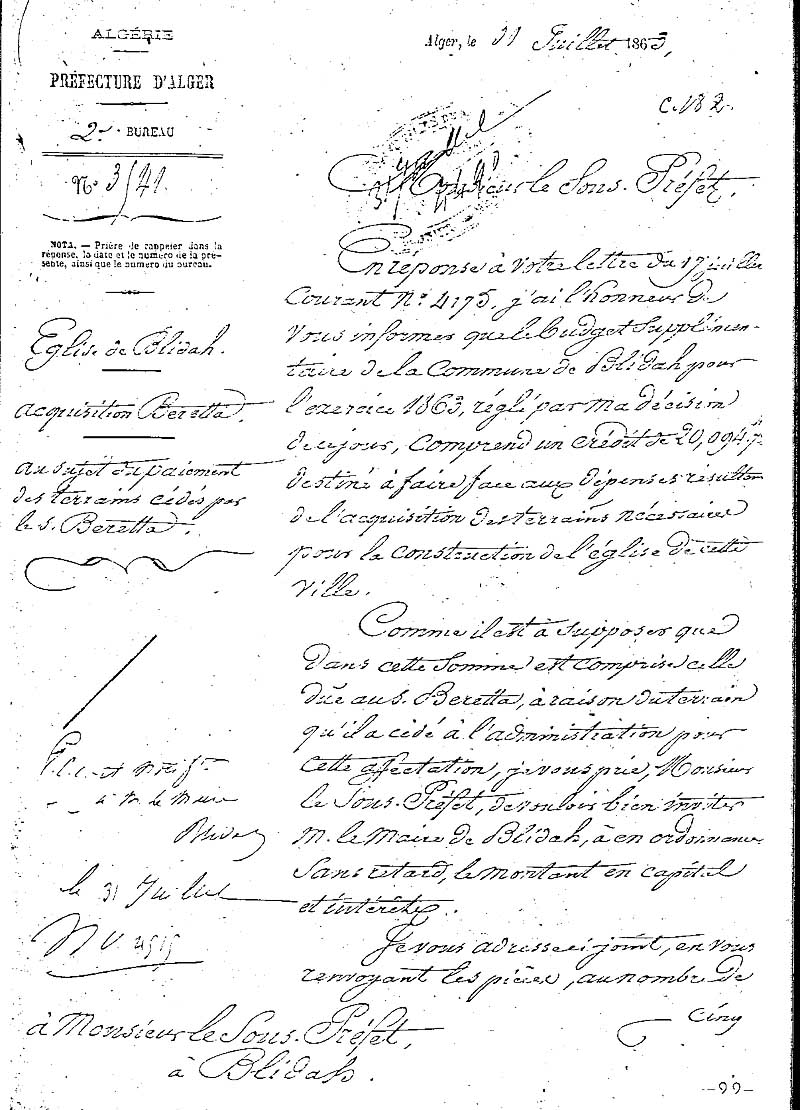 ALGÉRIE
PRÉFECTURE D'ALGER
2e. BUREAU
N° 3/41.
NOTA. — Prière de rappeler dans la
réponse, la date et le numéro de la pré-
sente, ainsi que le numéro du bureau.
Eglise de Blidah.
acquisition Beretta.
au sujet du paiement
des terrains cédés par
le S. Beretta.
à M. le Maire
Blidah
le 31 Juillet
à Monsieur le Sous-Préfet,
à Blidah.
Alger, le 31 Juillet 1863,
C. 182.
Monsieur le Sous-Préfet,
En réponse à votre lettre du 17 juillet
Courant N° 4175, j'ai l'honneur de
Vous informer que le budget Supplémen-
taire de la Commune de Blidah pour
l'exercice 1863, réglé par ma décision
de ce jour, comprend un crédit de 20,094 f.
destiné à faire face aux dépenses résultant
de l'acquisition des terrains nécessaires
pour la construction de l'église de cette
Ville.
Comme il est à supposer que
dans cette Somme est comprise celle
dûe au S. Beretta, à raison du terrain
qu'il a cédé à l'administration pour
cette affectation, je vous prie, Monsieur
le Sous-Préfet, de vouloir bien inviter
M. le Maire de Blidah, à en ordonnancer
Sans retard, le montant en capital
et intérêts.
Je vous adresse ci joint, en vous
renvoyant les pièces, au nombre de
Cinq
-99-